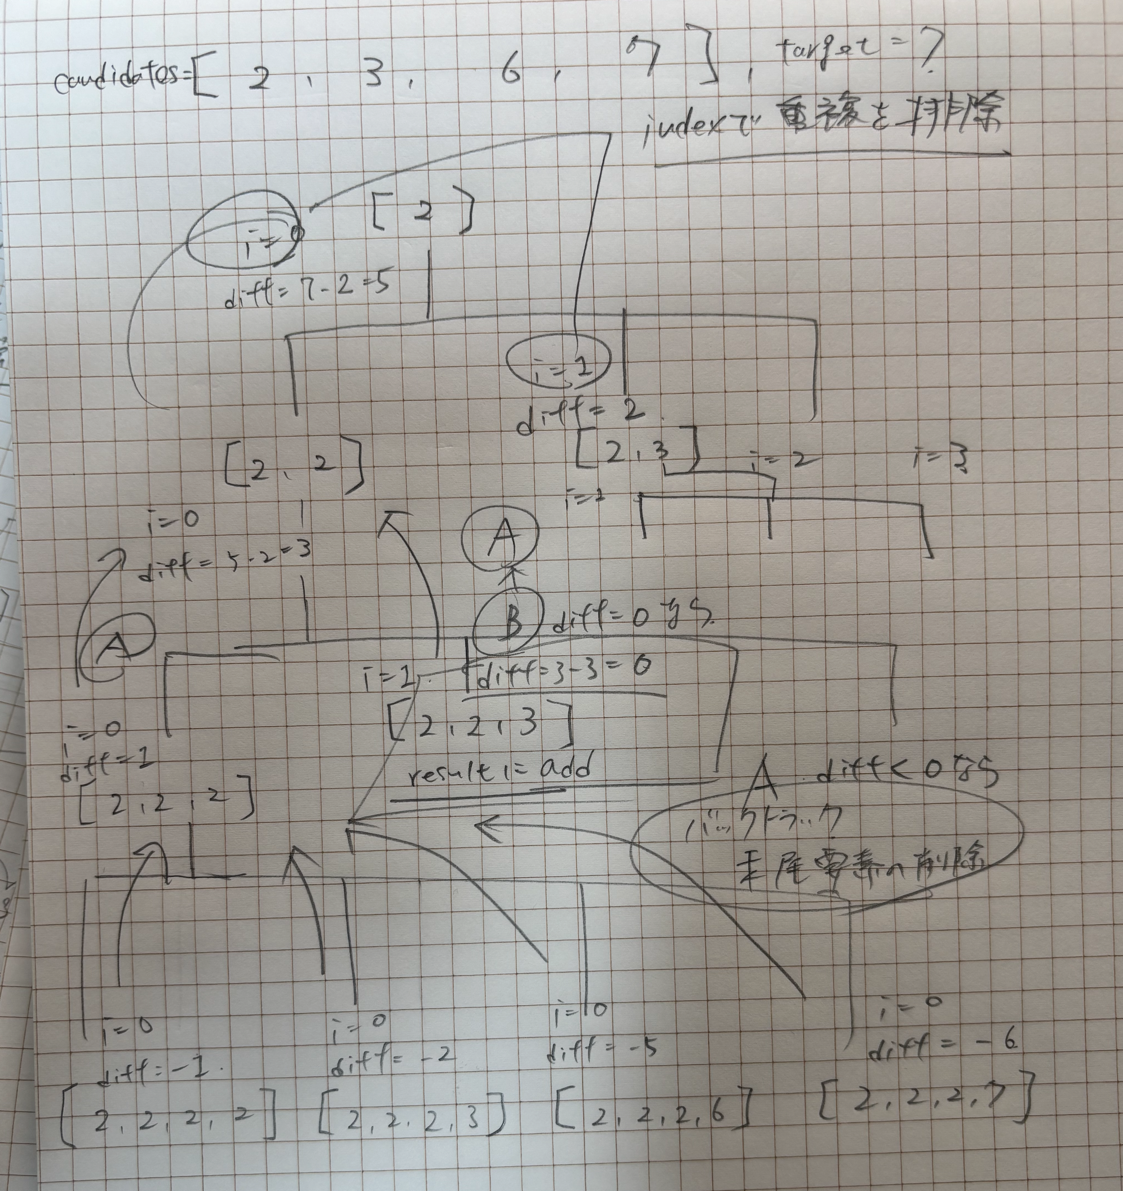 candidates=[ 2, 3, 6, 7 ], target=7
indexで重複を排除
[ 2 ]
i=0
diff=7-2=5
i=1
diff=2
[2,3]
i=2
i=3
[2, 2]
i=1
i=0
diff=5-2=3
A
B
diff=0なら
A
i=1
diff=3-3=0
[2,2,3]
i=0
diff=1
[2,2,2]
result に add
A diff<0なら
バックトラック
末尾要素の削除
i=0
diff=-1
[2,2,2,2]
i=0
diff=-2
[2,2,2,3]
i=0
diff=-5
[2,2,2,6]
i=0
diff=-6
[2,2,2,7]